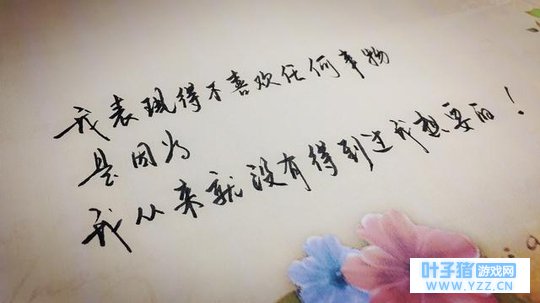 我表现得不喜欢任何事物
是因为
我从来就没有得到过我想要的!
叶子猪游戏网
WWW.YZZ.CN